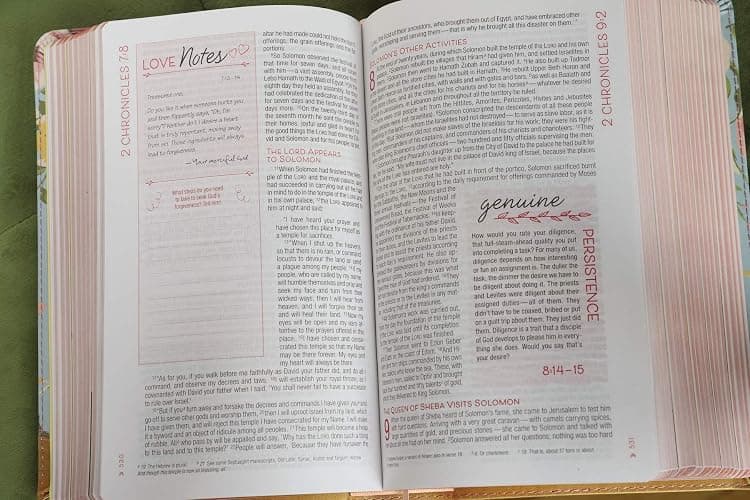 2 CHRONICLES 7:8
LOVE Notes
7:13–14
Treasured one,
Do you like it when someone hurts you
and then flippantly says, "Oh, I'm
sorry"? Neither do I. I desire a heart
that is truly repentant, moving away
from sin. Those ingredients will always
lead to forgiveness.
—Your merciful God
What steps do you need
to take to seek God's
forgiveness?
altar he had made could not hold the burnt
offerings, the grain offerings and the fat
portions.
8So Solomon observed the festival at
that time for seven days, and all Israel
with him—a vast assembly, people from
Lebo Hamath to the Wadi of Egypt. 9On the
eighth day they held an assembly, for they
had celebrated the dedication of the altar
for seven days and the festival for seven
days more. 10On the twenty-third day of
the seventh month he sent the people to
their homes, joyful and glad in heart for
the good things the LORD had done for Da-
vid and Solomon and for his people Israel.
THE LORD APPEARS
TO SOLOMON
11When Solomon had finished the tem-
ple of the LORD and the royal palace, and
had succeeded in carrying out all he had
in mind to do in the temple of the LORD and
in his own palace, 12the LORD appeared to
him at night and said:
"I have heard your prayer and
have chosen this place for myself as
a temple for sacrifices.
13"When I shut up the heavens
so that there is no rain, or command
locusts to devour the land or send
a plague among my people, 14if my
people, who are called by my name,
will humble themselves and pray and
seek my face and turn from their
wicked ways, then I will hear from
heaven, and I will forgive their sin
and will heal their land. 15Now my
eyes will be open and my ears at-
tentive to the prayers offered in this
place. 16I have chosen and conse-
crated this temple so that my Name
may be there forever. My eyes and
my heart will always be there.
17"As for you, if you walk before me faithfully as David your father did, and do all I
command, and observe my decrees and laws, 18I will establish your royal throne, as I
covenanted with David your father when I said, 'You shall never fail to have a successor
to rule over Israel.'
19"But if you turn away and forsake the decrees and commands I have given you and
go off to serve other gods and worship them, 20then I will uproot Israel from my land, which
I have given them, and will reject this temple I have consecrated for my Name. I will make
it a byword and an object of ridicule among all peoples. 21This temple will become a heap
of rubble. All who pass by will be appalled and say, 'Why has the LORD done such a thing
to this land and to this temple?' 22People will answer, 'Because they have forsaken the
10 The Hebrew is plural. 21 See some Septuagint manuscripts, Old Latin, Syriac, Arabic and Targum; Hebrew
And though this temple is now so imposing, all
530
LORD, the God of their ancestors, who brought them out of Egypt, and have embraced other
gods, worshiping and serving them—that is why he brought all this disaster on them.'"
SOLOMON'S OTHER ACTIVITIES
8 of twenty years, during which Solomon built the temple of the LORD and his own
Solomon rebuilt the villages that Hiram had given him, and settled Israelites in
Solomon then went to Hamath Zobah and captured it. 4He also built up Tadmor
and all the store cities he had built in Hamath. 5He rebuilt Upper Beth Horon and
as fortified cities, with walls and with gates and bars, 6as well as Baalath and
cities, and all the cities for his chariots and for his horses—whatever he desired
in Lebanon and throughout all the territory he ruled.
people left from the Hittites, Amorites, Perizzites, Hivites and Jebusites
not Israelites). 8Solomon conscripted the descendants of all these people
in the land—whom the Israelites had not destroyed—to serve as slave labor, as it is
9But Solomon did not make slaves of the Israelites for his work; they were his fight-
commanders of his captains, and commanders of his chariots and charioteers. 10They
chief officials—two hundred and fifty officials supervising the men.
brought Pharaoh's daughter up from the City of David to the palace he had built for
"My wife must not live in the palace of David king of Israel, because the places
the LORD has entered are holy."
the altar of the LORD that he had built in front of the portico, Solomon sacrificed burnt
13according to the daily requirement for offerings commanded by Moses
the Sabbaths, the New Moons and the
annual festivals—the Festival of
Unleavened Bread, the Festival of Weeks
and the Festival of Tabernacles. 14In keep-
ing with the ordinance of his father David,
he appointed the divisions of the priests
for their duties, and the Levites to lead the
praise and to assist the priests according
to each day's requirement. He also ap-
pointed the gatekeepers by divisions for
the various gates, because this was what
David the man of God had ordered. 15They
did not deviate from the king's commands
to the priests or to the Levites in any mat-
ter, including that of the treasuries.
16All Solomon's work was carried out,
from the day the foundation of the temple
of the LORD was laid until its completion.
So the temple of the LORD was finished.
17Then Solomon went to Ezion Geber
and Elath on the coast of Edom. 18And Hi-
ram sent him ships commanded by his own
men, sailors who knew the sea. These, with
Solomon's men, sailed to Ophir and brought
back four hundred and fifty talents of gold,
which they delivered to King Solomon.
genuine
PERSISTENCE
How would you rate your diligence,
that full-steam-ahead quality you put
into completing a task? For many of us,
diligence depends on how interesting
or fun an assignment is. The duller the
task, the dimmer the desire we have to
be diligent about doing it. The priests
and Levites were diligent about their
assigned duties—all of them. They
didn't have to be coaxed, bribed or put
on a guilt trip about them. They just did
them. Diligence is a trait that a disciple
of God develops to please him in every-
thing she does. Would you say that's
your desire?
8:14–15
THE QUEEN OF SHEBA VISITS SOLOMON
9 When the queen of Sheba heard of Solomon's fame, she came to Jerusalem to test him
with hard questions. Arriving with a very great caravan—with camels carrying spices,
large quantities of gold, and precious stones—she came to Solomon and talked with
him about all she had on her mind. 2Solomon answered all her questions; nothing was too hard
2 CHRONICLES 9:2
531